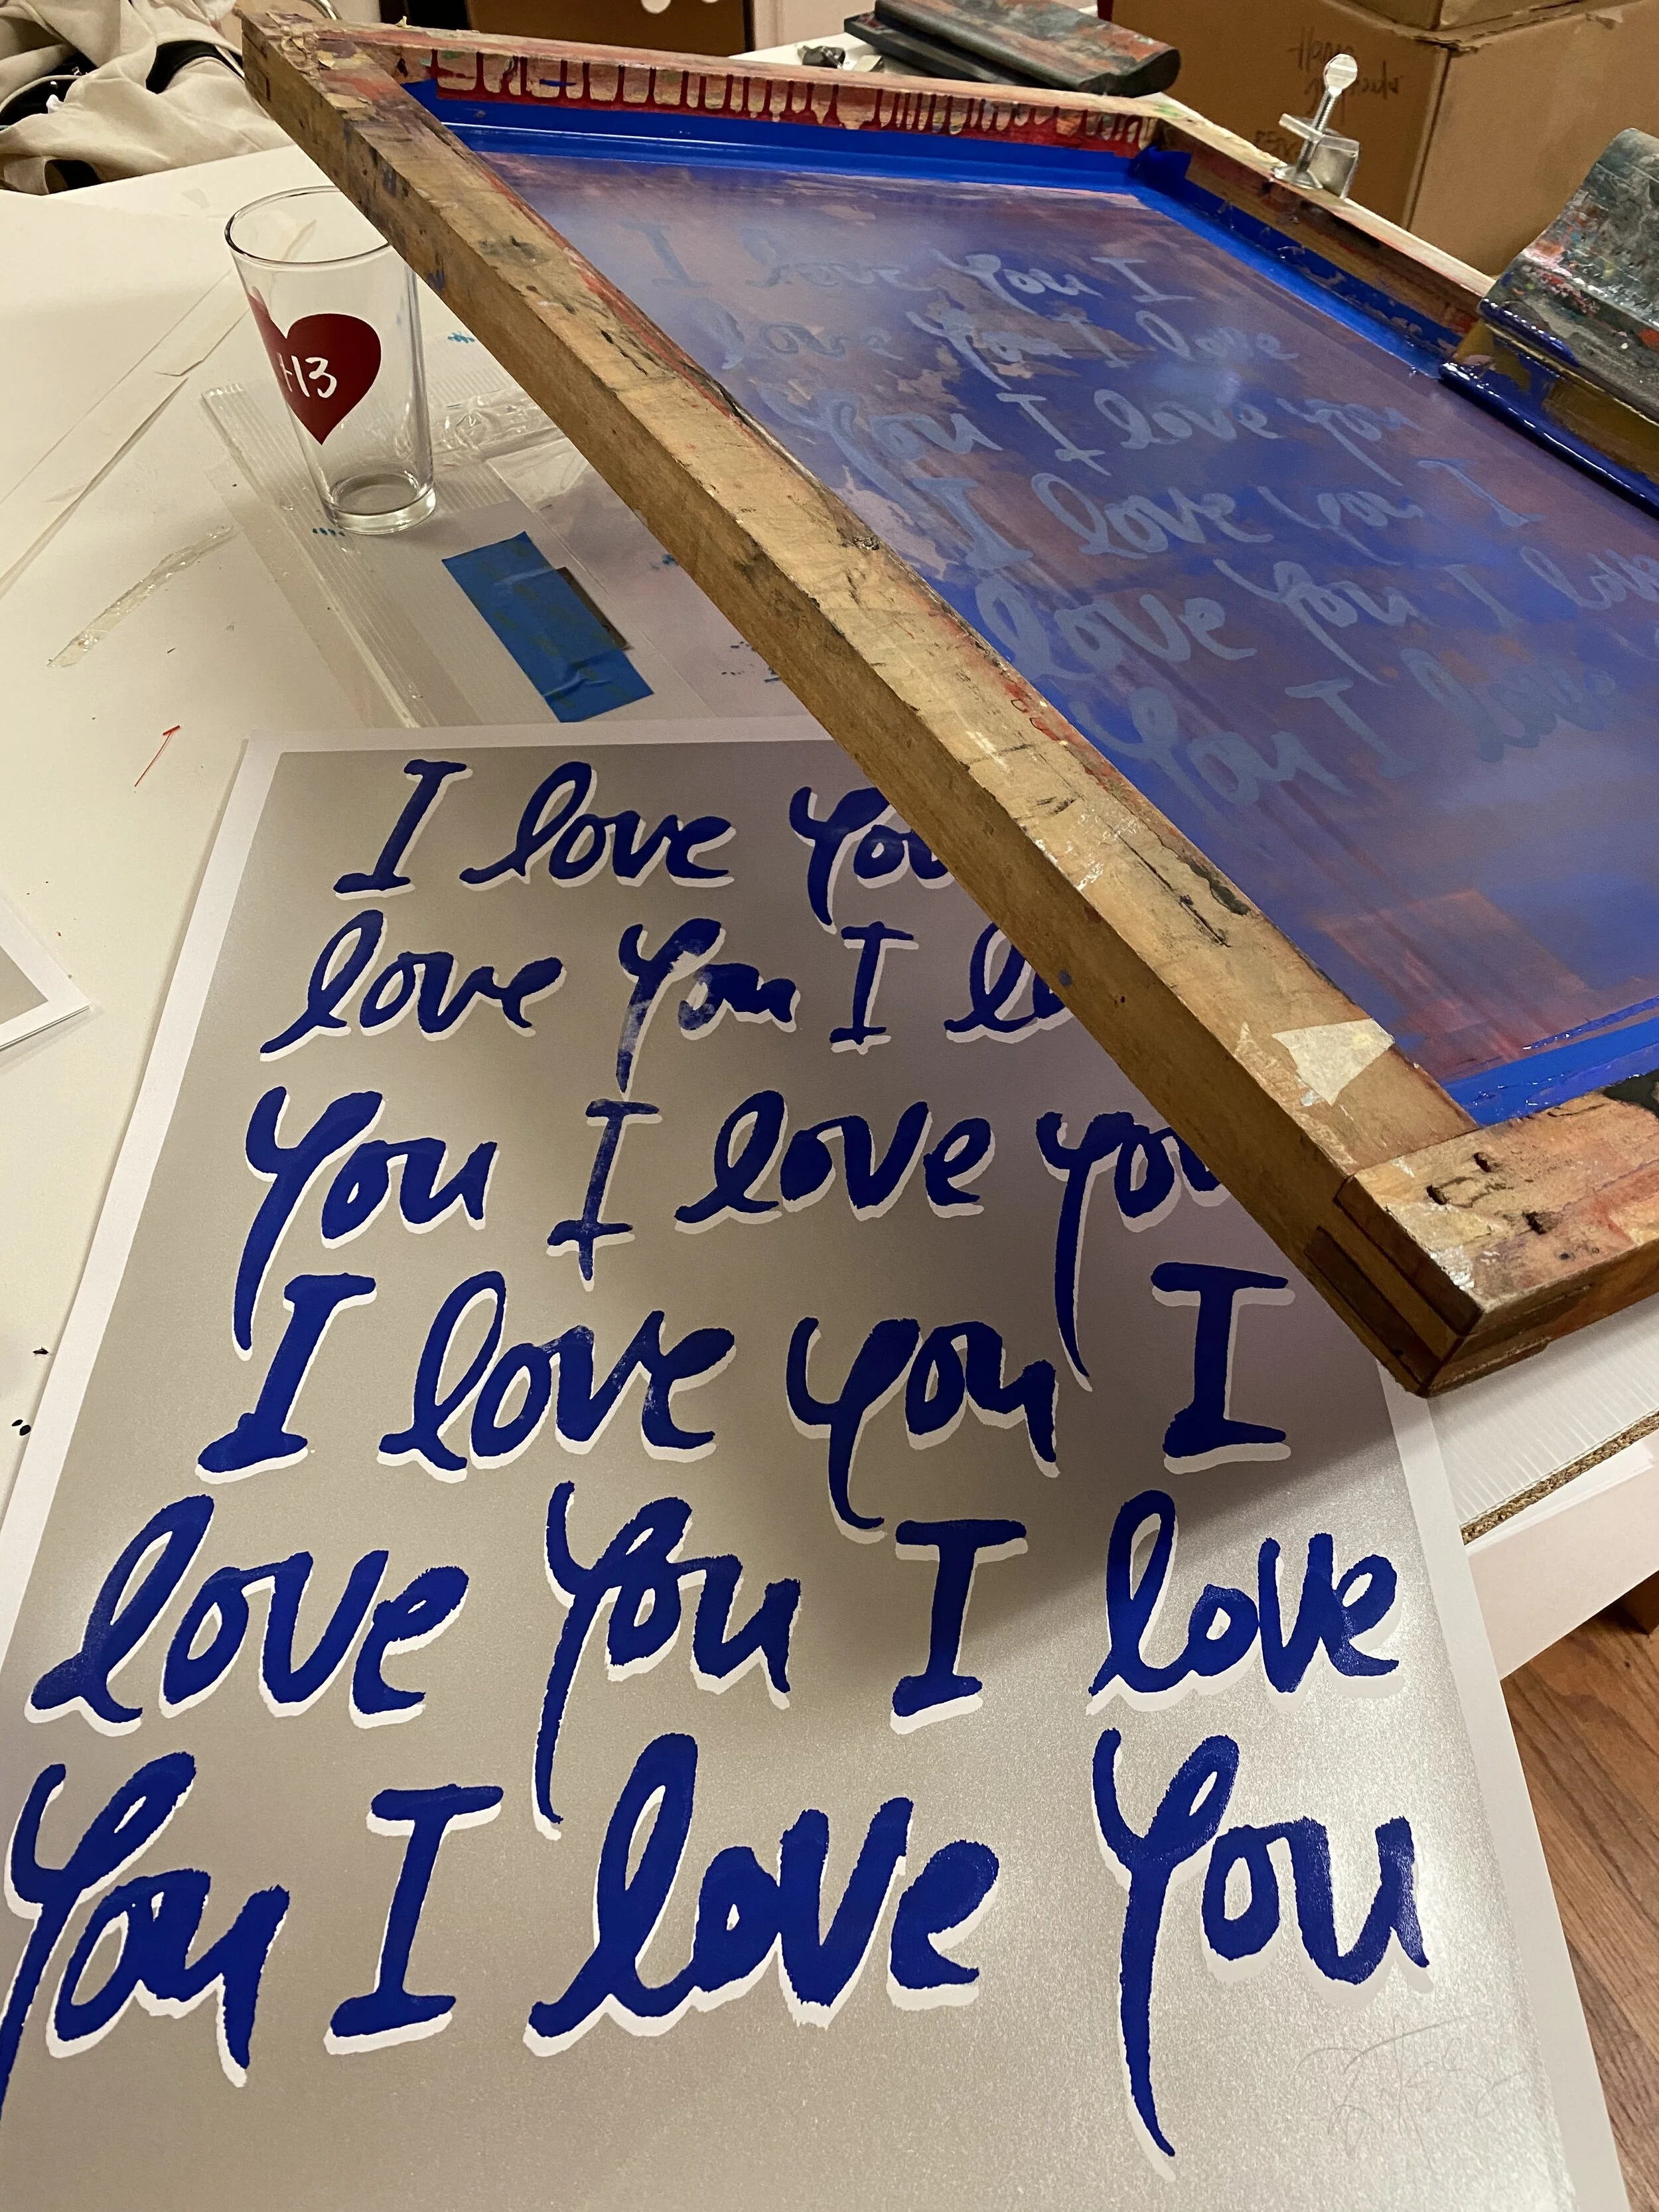 I love You
love You I lo
You I love you
I love you I
love You I love
You I love You
I love You I
love You I love
You I love you
I love you I
love You I love
You I love
H3